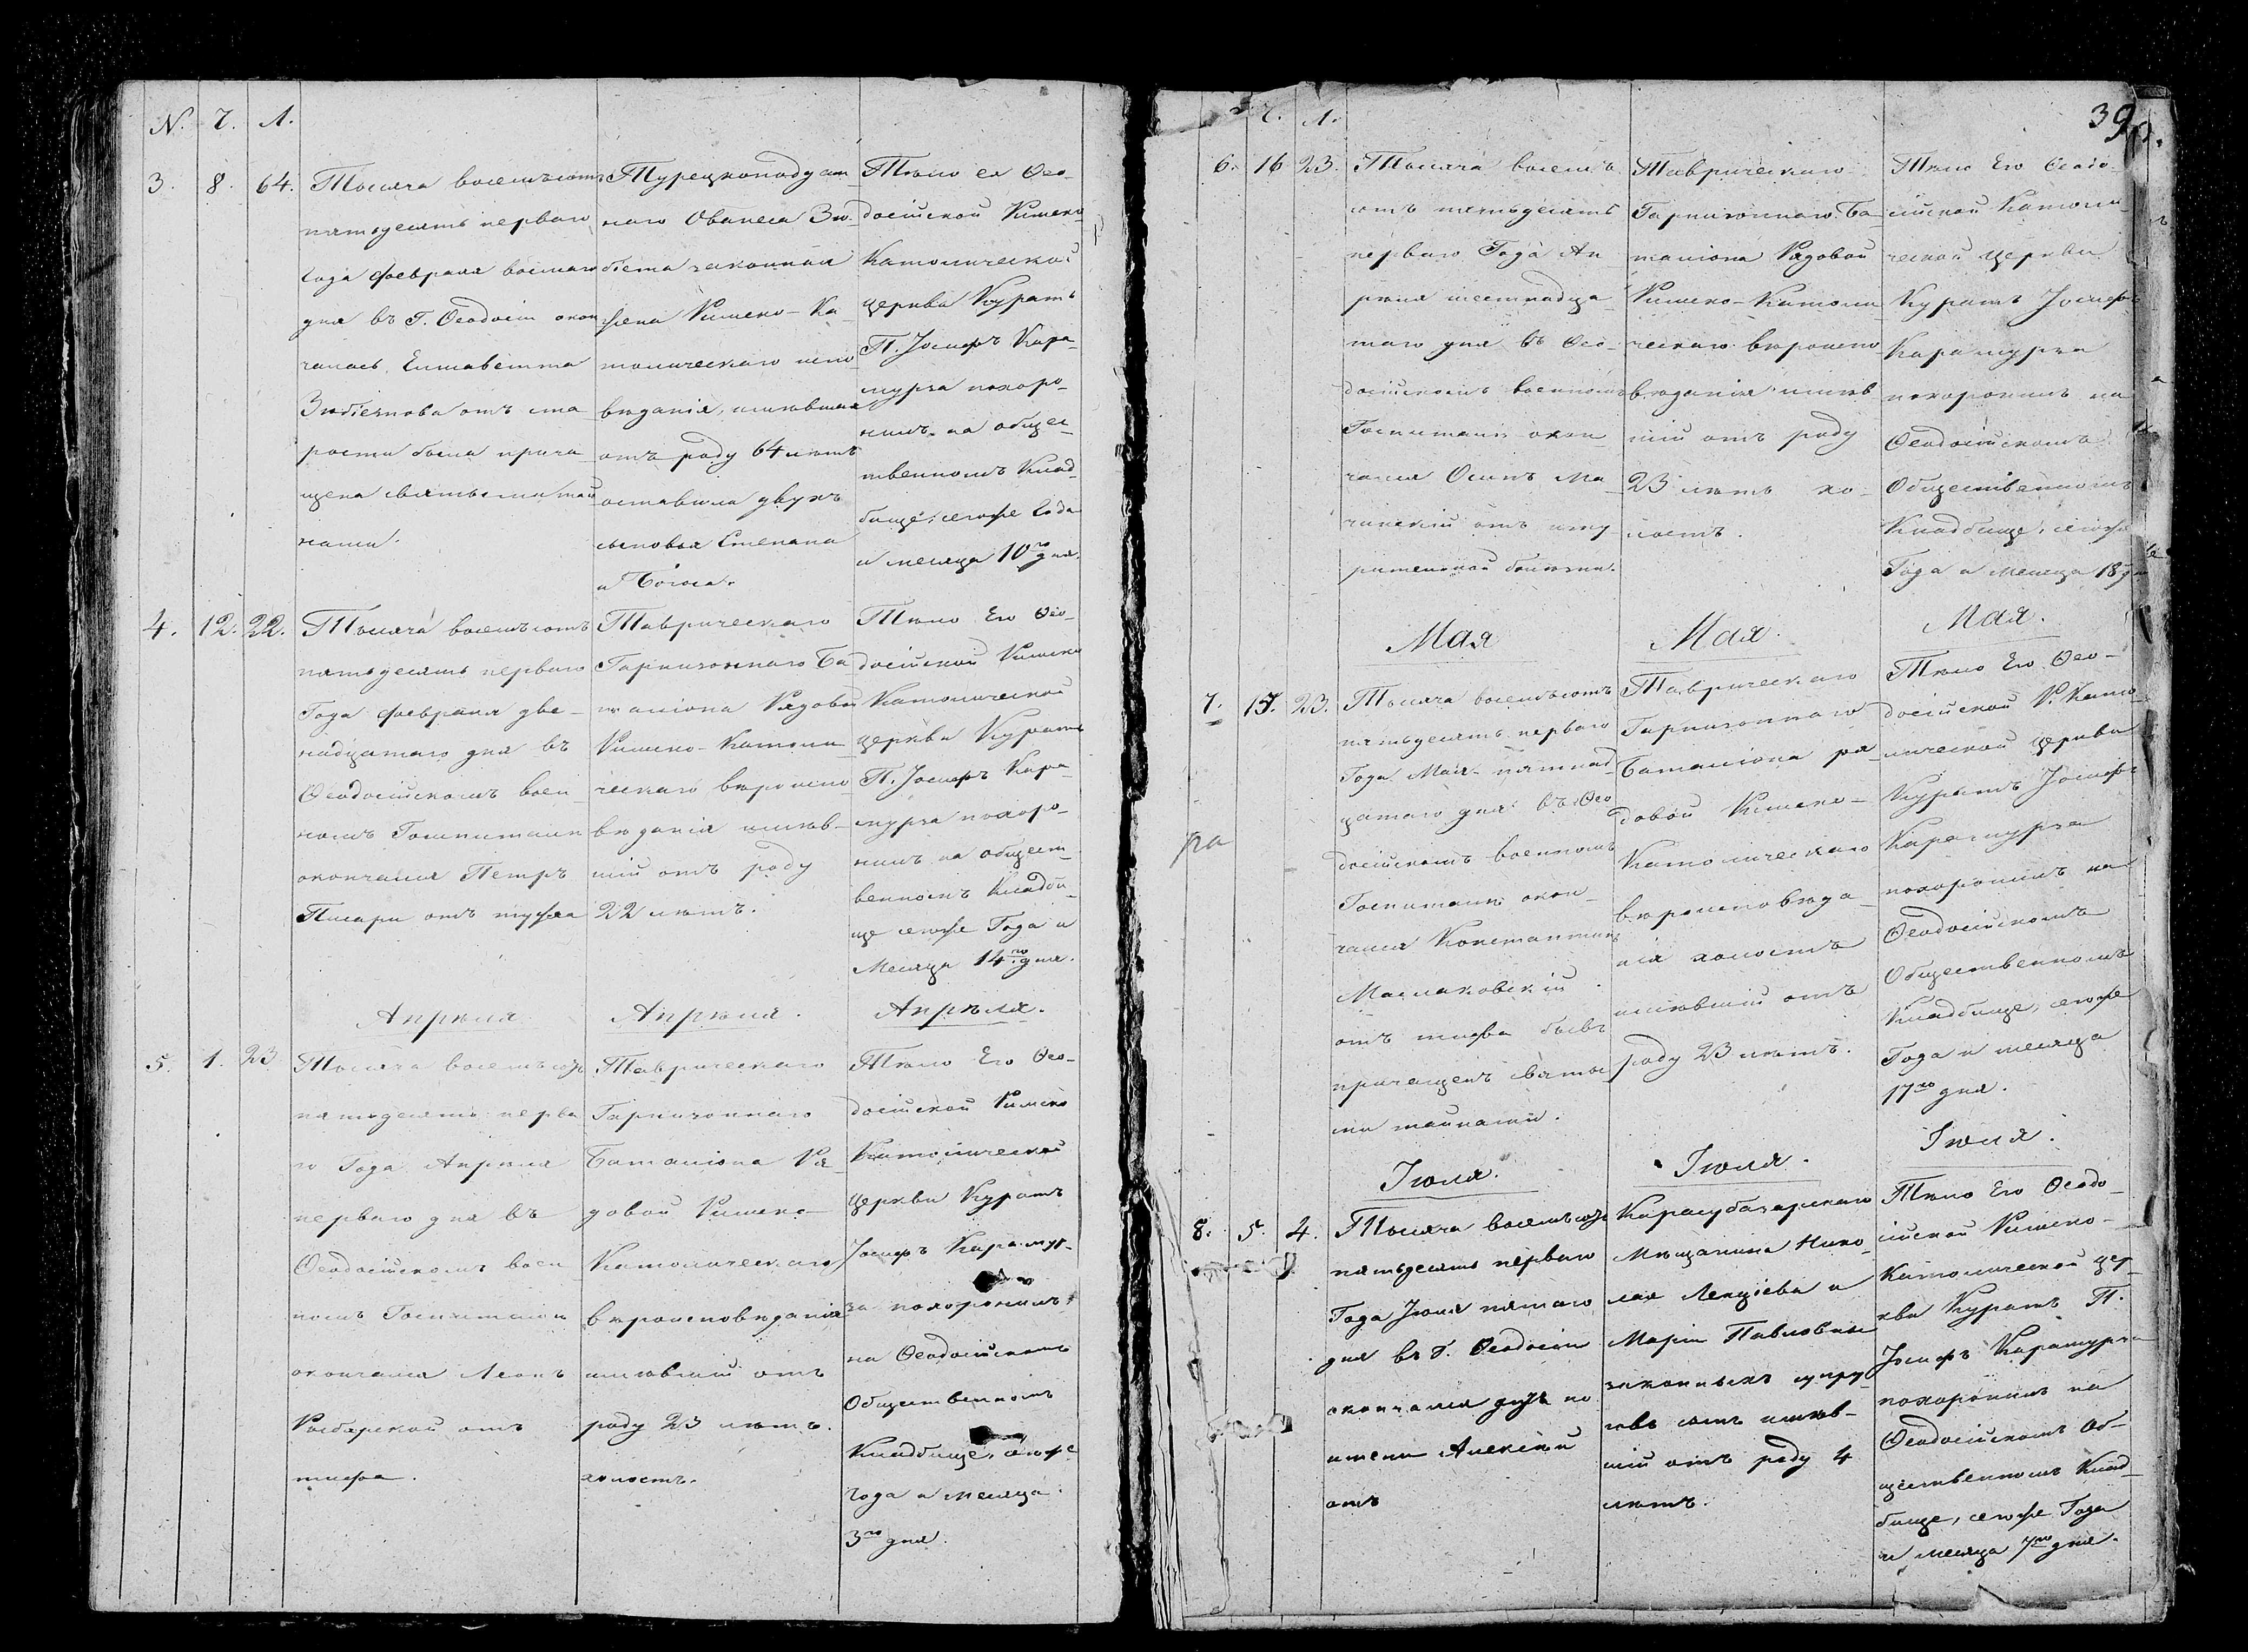 N. Ч. Л.
3. 8. 64.
Тысяча восемьсотъ
пятьдесятъ перваго
года февраля восмаго
дня въ Г. Ѳеодосіи окон
чалась Елизаветта
отъ ста
рости была прича
щена святыми тай
нами.
Турецкоподдан
наго Ованеса Зю
законная
жена Римско-Ка
толическаго испо
вѣданія, имѣвшая
отъ роду 64 лѣтъ
оставила двухъ
сыновья Степана
и Богоса.
Тѣло ея Ѳео-
досійской Римско
Католической
церкви Куратъ
П. Іосифъ Кара-
мурза похоро-
нилъ на общес-
твенномъ Клад-
бище, сегоже Года
и месяца 10го дня.
4. 12. 22.
Тысяча восемьсотъ
пятьдесятъ перваго
Года февраля две-
надцатаго дня въ
Ѳеодосійскомъ воен
номъ Гошпитали
окончался Петръ
отъ
Таврическаго
Гарнизоннаго Ба
таліона Рядовой
Римско-Католи
ческаго вѣроиспо
вѣданія имѣв-
шій отъ роду
22 лѣтъ.
Тѣло Его Ѳео-
досійской Римско
Католической
церкви Куратъ
П. Іосифъ Кара-
мурза похоро-
нилъ на общест-
венномъ Кладби-
ще сегоже Года и
Месяца 14го дня.
Апрѣля
Апрѣля.
Апрѣля.
5. 1. 23
Тысяча восемьсотъ
пятьдесятъ перва
го Года Апрѣля
перваго дня въ
Ѳеодосійскомъ воен
номъ Госпитали
окончался Леонъ
отъ
тифа.
Таврическаго
Гарнизоннаго
Баталіона Ря-
довой Римско-
Католическаго
вѣроисповѣданія
имѣвшій отъ
роду 23 лѣтъ.
холостъ.
Тѣло Его Ѳео-
досійской Римско
Католической
Церкви Куратъ
Іосифъ Карамур-
за похоронилъ
на Ѳеодосійскомъ
Общественномъ
Кладбище, сегоже
года и месяца
3го дня.
39
Ч. Л.
6. 16 23.
Тысяча восемь
сотъ пятьдесятъ
перваго Года Ап
рѣля шестнадца
таго дня въ Ѳео-
досійскомъ военномъ
Госпитали окон
чался Осипъ Ма-
отъ изну
рительной болѣзни.
Таврическаго
Гарнизоннаго Ба-
таліона Рядовой
Римско-Католи
ческаго вѣроиспо
вѣданія имѣв
шій отъ роду
23 лѣтъ хо-
лостъ.
Тѣло Его Ѳеодо-
сійской Католи-
ческой церкви
Куратъ Іосифъ
Карамурза
похоронилъ на
Ѳеодосійскомъ
Общественномъ
Кладбище, сегоже
Года и месяца 18го
Мая
Мая.
Мая.
7. 15. 23.
Тысяча восемьсотъ
пятьдесятъ перваго
Года Мая пятнад-
цатаго дня въ Ѳео
досійскомъ военномъ
Госпитали окон-
чался Константинъ
Маслаковскій
отъ тифа бывъ
причащенъ святы-
ми тайнами.
Таврическаго
Гарнизоннаго
Баталіона ря
довой Римско-
Католическаго
вѣроисповѣда-
нія холостъ
имѣвшій отъ
роду 23 лѣтъ.
Тѣло Его Ѳео-
досійской Р. Като
лической церкви
Куратъ Іосифъ
Карамурза
похоронилъ на
Ѳеодосійскомъ
Общественномъ
Кладбище, сегоже
Года и месяца
17го дня.
ра
Іюля.
Іюля.
Іюля.
8. 5. 4.
Тысяча восемьсотъ
пятьдесятъ перваго
Года Іюля пятаго
дня въ Г. Ѳеодосіи
окончался дитя по
имени Алексѣй
отъ
Карасубазарскаго
Мѣщанина Нико
лая и
Маріи Павловны
законныхъ супру-
говъ сынъ имѣв-
шій отъ роду 4
лѣтъ.
Тѣло Его Ѳеодо-
сійской Римско-
Католической цер-
кви Куратъ П.
Іосифъ Карамурза
похоронилъ на
Ѳеодосійскомъ Об-
щественномъ Клад-
бище, сегоже Года
и месяца 7го дня.